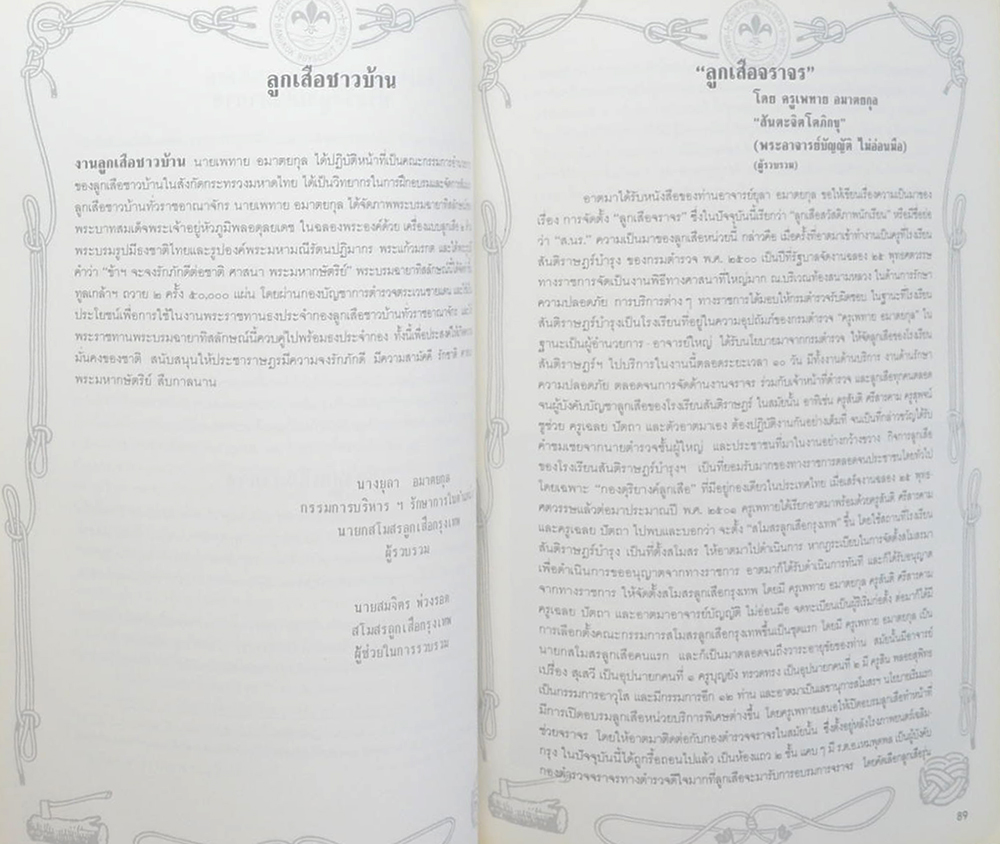 ลูกเสือชาวบ้าน
งานลูกเสือชาวบ้าน นายเพทาย อมาตยกุล ได้ปฏิบัติหน้าที่เป็นคณะกรรมการอำนวยการ
ของลูกเสือชาวบ้านในสังกัดกระทรวงมหาดไทย ได้เป็นวิทยากรในการฝึกอบรมและจัดการฝึกอบรม
ลูกเสือชาวบ้านทั่วราชอาณาจักร นายเพทาย อมาตยกุล ได้จัดภาพพระบรมฉายาทิสลักษณ์ของ
พระบาทสมเด็จพระเจ้าอยู่หัวภูมิพลอดุลยเดช ในฉลองพระองค์ด้วย เครื่องแบบลูกเสือ
พระบรมรูปมีธงชาติไทยและรูปองค์พระมหามณีรัตนปฏิมากร พระแก้วมรกต
คำว่า "ข้าฯ จะจงรักภักดีต่อชาติ ศาสนา พระมหากษัตริย์" พระบรมฉายาทิสลักษณ์นี้ได้
ทูลเกล้าฯ ถวาย ๒ ครั้ง ๕๐,๐๐๐ แผ่น โดยผ่านกองบัญชาการตำรวจตระเวนชายแดน
ประโยชน์เพื่อการใช้ในงานพระราชทานธงประจำกองลูกเสือชาวบ้านทั่วราชอาณาจักร
พระราชทานพระบรมฉายาทิสลักษณ์นี้ควบคู่ไปพร้อมธงประจำกอง ทั้งนี้เพื่อประสงค์ให้เกิดความ
มั่นคงของชาติ สนับสนุนให้ประชาราษฎรมีความจงรักภักดี มีความสามัคคี รักชาติ ศาสนา
พระมหากษัตริย์ สืบกาลนาน
นางยุลา อมาตยกุล
กรรมการบริหาร ฯ รักษาการในตำแหน่ง
นายกสโมสรลูกเสือกรุงเทพ
ผู้รวบรวม
นายสมจิตร พ่วงรอด
สโมสรลูกเสือกรุงเทพ
ผู้ช่วยในการรวบรวม
"ลูกเสือจราจร"
โดย ครูเพทาย อมาตยกุล
"สันตะจิตโตภิกขุ"
(พระอาจารย์บัญญัติ ไม่อ่อนมือ)
(ผู้รวบรวม)
อาตมาได้รับหนังสือของท่านอาจารย์ยุลา อมาตยกุล ขอให้เขียนเรื่องความเป็นมาของ
เรื่อง การจัดตั้ง "ลูกเสือจราจร" ซึ่งในปัจจุบันนี้เรียกว่า "ลูกเสือสวัสดิภาพนักเรียน" หรือมีชื่อย่อ
ว่า "ส.นร." ความเป็นมาของลูกเสือหน่วยนี้ กล่าวคือ เมื่อครั้งที่อาตมาเข้าทำงานเป็นครูที่โรงเรียน
สันติราษฎร์บำรุง ของกรมตำรวจ พ.ศ. ๒๕๐๐ เป็นปีที่รัฐบาลจัดงานฉลอง ๒๕ พุทธศตวรรษ
ทางราชการจัดเป็นงานพิธีทางศาสนาที่ใหญ่มาก ณ.บริเวณท้องสนามหลวง ในด้านการรักษา
ความปลอดภัย การบริการต่างๆ ทางราชการได้มอบให้กรมตำรวจรับผิดชอบ ในฐานะที่โรงเรียน
สันติราษฎร์บำรุงเป็นโรงเรียนที่อยู่ในความอุปถัมภ์ของกรมตำรวจ "ครูเพทาย อมาตยกุล" ใน
ฐานะเป็นผู้อำนวยการ - อาจารย์ใหญ่ ได้รับนโยบายมาจากกรมตำรวจ ให้จัดลูกเสือของโรงเรียน
สันติราษฎร์ฯ ไปบริการในงานนี้ตลอดระยะเวลา ๑๐ วัน มีทั้งงานด้านบริการ งานด้านรักษา
ความปลอดภัย ตลอดจนการจัดด้านงานจราจร ร่วมกับเจ้าหน้าที่ตำรวจ และลูกเสือทุกคนตลอด
จนผู้บังคับบัญชาลูกเสือของโรงเรียนสันติราษฎร์ ในสมัยนั้น อาทิเช่น ครูสันติ ศรีสารคาม ครูสุพจน์
ชูช่วย ครูเฉลย ปัตถา และตัวอาตมาเอง ต้องปฏิบัติงานกันอย่างเต็มที่ จนเป็นที่กล่าวขวัญได้รับ
คำชมเชยจากนายตำรวจชั้นผู้ใหญ่ และประชาชนที่มาในงานอย่างกว้างขวาง กิจการลูกเสือ
ของโรงเรียนสันติราษฎร์บำรุงฯ เป็นที่ยอมรับมากของทางราชการตลอดจนประชาชนโดยทั่วไป
โดยเฉพาะ "กองดุริยางค์ลูกเสือ" ที่มีอยู่กองเดียวในประเทศไทย เมื่อเสร็จงานฉลอง ๒๕ พุทธ-
ศตวรรษแล้วต่อมาประมาณปี พ.ศ. ๒๕๐๑ ครูเพทายได้เรียกอาตมาพร้อมด้วยครูสันติ ศรีสารคาม
และครูเฉลย ปัตถา ไปพบและบอกว่า จะตั้ง "สโมสรลูกเสือกรุงเทพ" ขึ้น โดยใช้สถานที่โรงเรียน
สันติราษฎร์บำรุง เป็นที่ตั้งสโมสร ให้อาตมาไปดำเนินการ หากฎระเบียบในการจัดตั้งสโมสรมา
เพื่อดำเนินการขออนุญาตจากทางราชการ อาตมาก็ได้รับดำเนินการทันที และก็ได้รับอนุญาต
จากทางราชการ ให้จัดตั้งสโมสรลูกเสือกรุงเทพ โดยมี ครูเพทาย อมาตยกุล ครูสันติ ศรีสารคาม
ครูเฉลย ปัตถา และอาตมาอาจารย์บัญญัติ ไม่อ่อนมือ จดทะเบียนเป็นผู้ริเริ่มก่อตั้ง ต่อมาก็ได้มี
การเลือกตั้งคณะกรรมการสโมสรลูกเสือกรุงเทพขึ้นเป็นชุดแรก โดยมี ครูเพทาย อมาตยกุล เป็น
นายกสโมสรลูกเสือคนแรก และก็เป็นมาตลอดจนถึงวาระอายุขัยของท่าน สมัยนั้นมีอาจารย์
เปรื่อง สุเสวี เป็นอุปนายกคนที่ ๑ ครูบุญยัง ทรวดทรง เป็นอุปนายกคนที่ ๒ มี ครูสิน พลอยสุพิทธ
เป็นกรรมการอาวุโส และมีกรรมการอีก ๑๒ ท่าน และอาตมาเป็นเลขานุการสโมสรฯ นโยบายเริ่มแรก
มีการเปิดอบรมลูกเสือหน่วยบริการพิเศษต่างขึ้น โดยครูเพทายเสนอให้เปิดอบรมลูกเสือทำหน้าที่
ช่วยจราจร โดยให้อาตมาติดต่อกับกองตำรวจจราจรในสมัยนั้น ซึ่งตั้งอยู่หลังโรงภาพยนตร์เฉลิม-
กรุง ในปัจจุบันนี้ได้ถูกรื้อถอนไปแล้ว เป็นห้องแถว ๒ ชั้น แคบ ๆ มี ร.ต.อ. เป็นผู้บังคับ
กองตำรวจจราจรทางตำรวจดีใจมากที่ลูกเสือจะมารับการอบรมการจราจร โดยคัดเลือกลูกเสือรุ่น
89